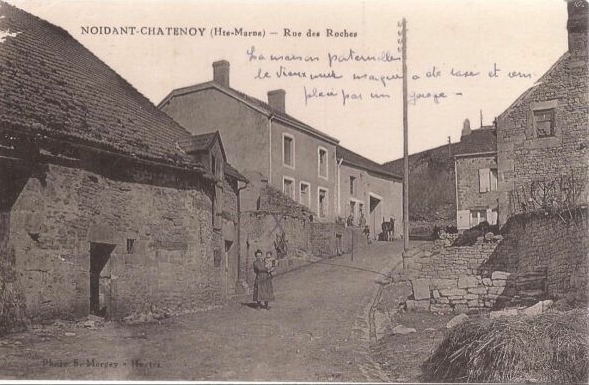 NOIDANT-CHATENOY (Hte-Marne) - Rue des Roches
La maison paternelle
le vieux mur a été rasé et rem
placé par un garage -
Photo E. Mergey - Hortes